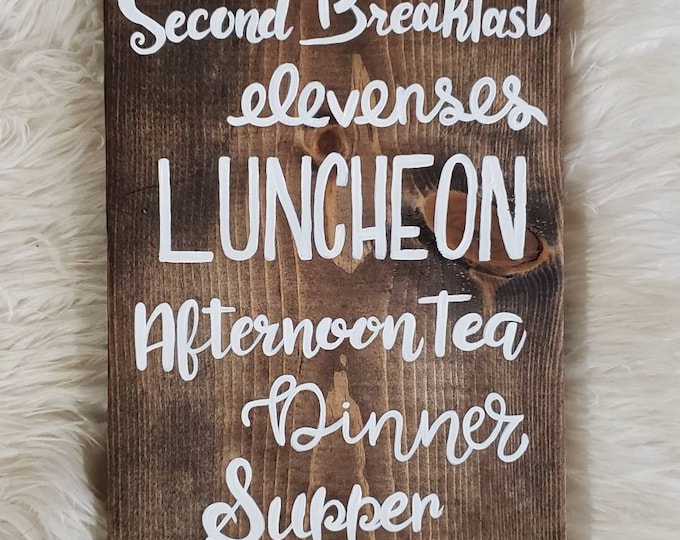 Second Breakfast
elevenses
LUNCHEON
Afternoon Tea
Dinner
Supper